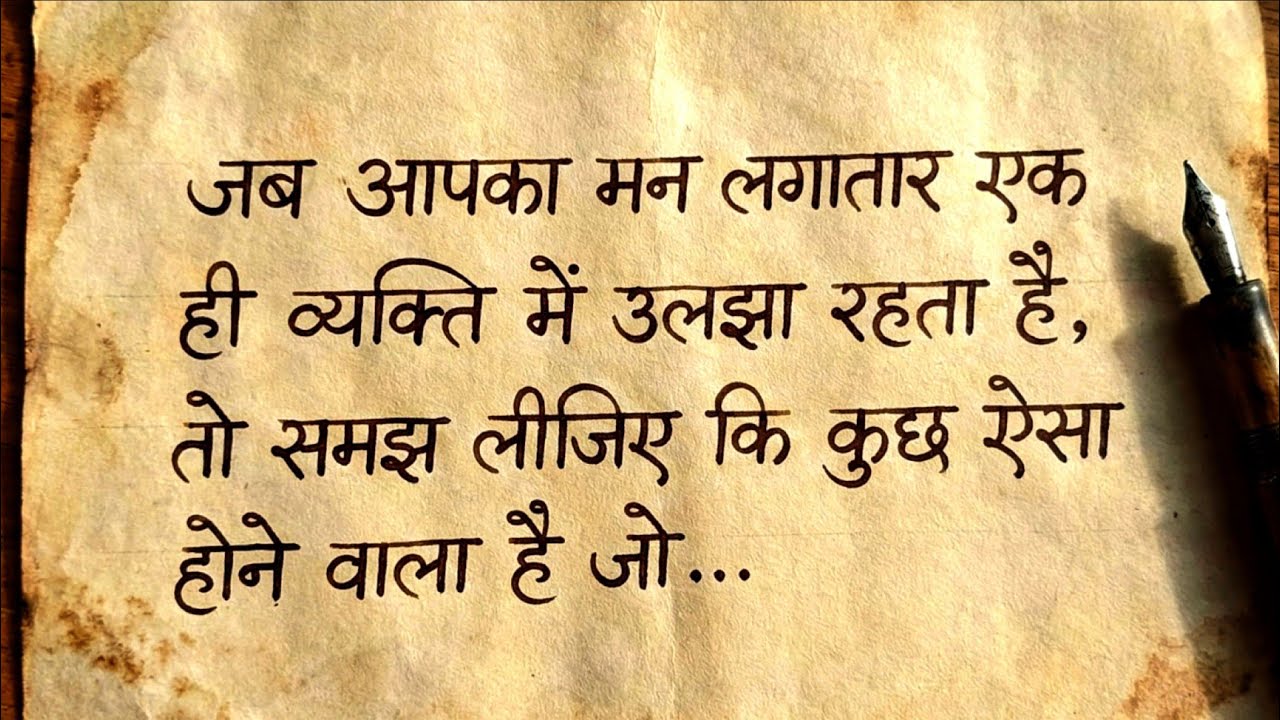 जब आपका मन लगातार एक
ही व्यक्ति में उलझा रहता है,
तो समझ लीजिए कि कुछ ऐसा
होने वाला है जो...